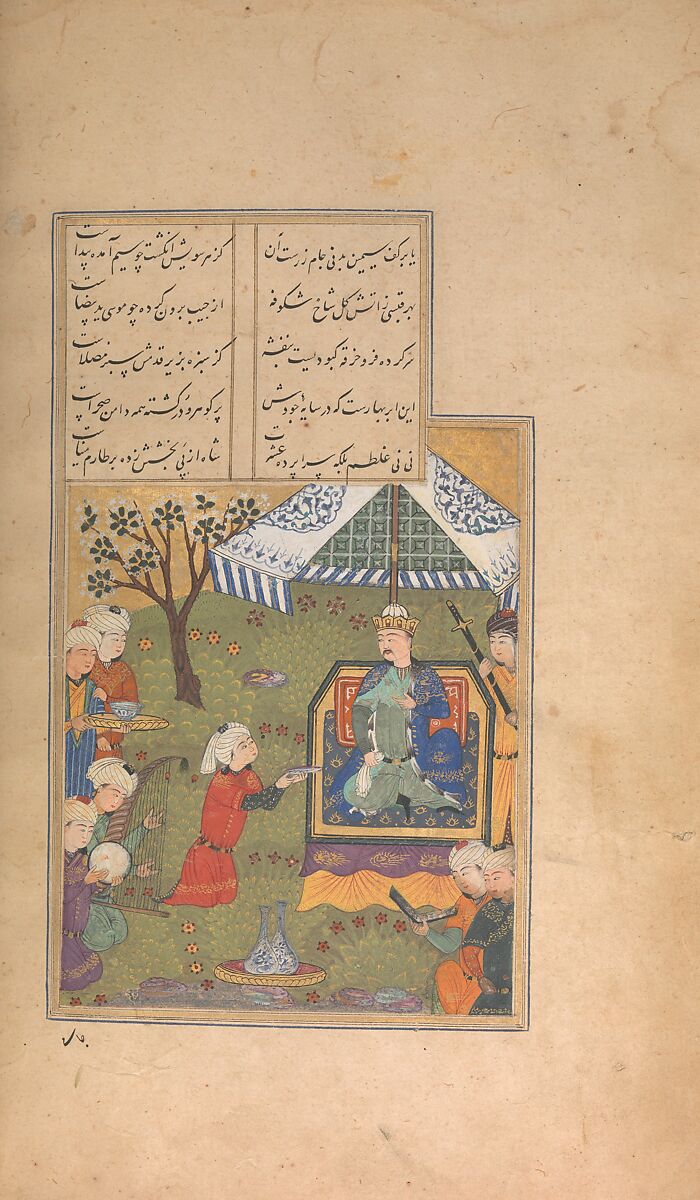 یا برکف سیمین بدنی جام زرست آن کز هر سویش انگشت چو سیم آمده پیداست
بهر قبسی زآتش گل شاخ شکوفه از جیب برون کرده چو موسی ید بیضاست
سر کرده فرو خرقه کبودیست بنفشه کز سبزه بزیر قدمش سبز مصلاست
این ابر بهارست که در سایهٔ جودش پر گوهر و در گشته همه دامن صحراست
نی نی غلطم بلکه سراپرده عشرت شاه از پی بخشش زده بر طارم میناست